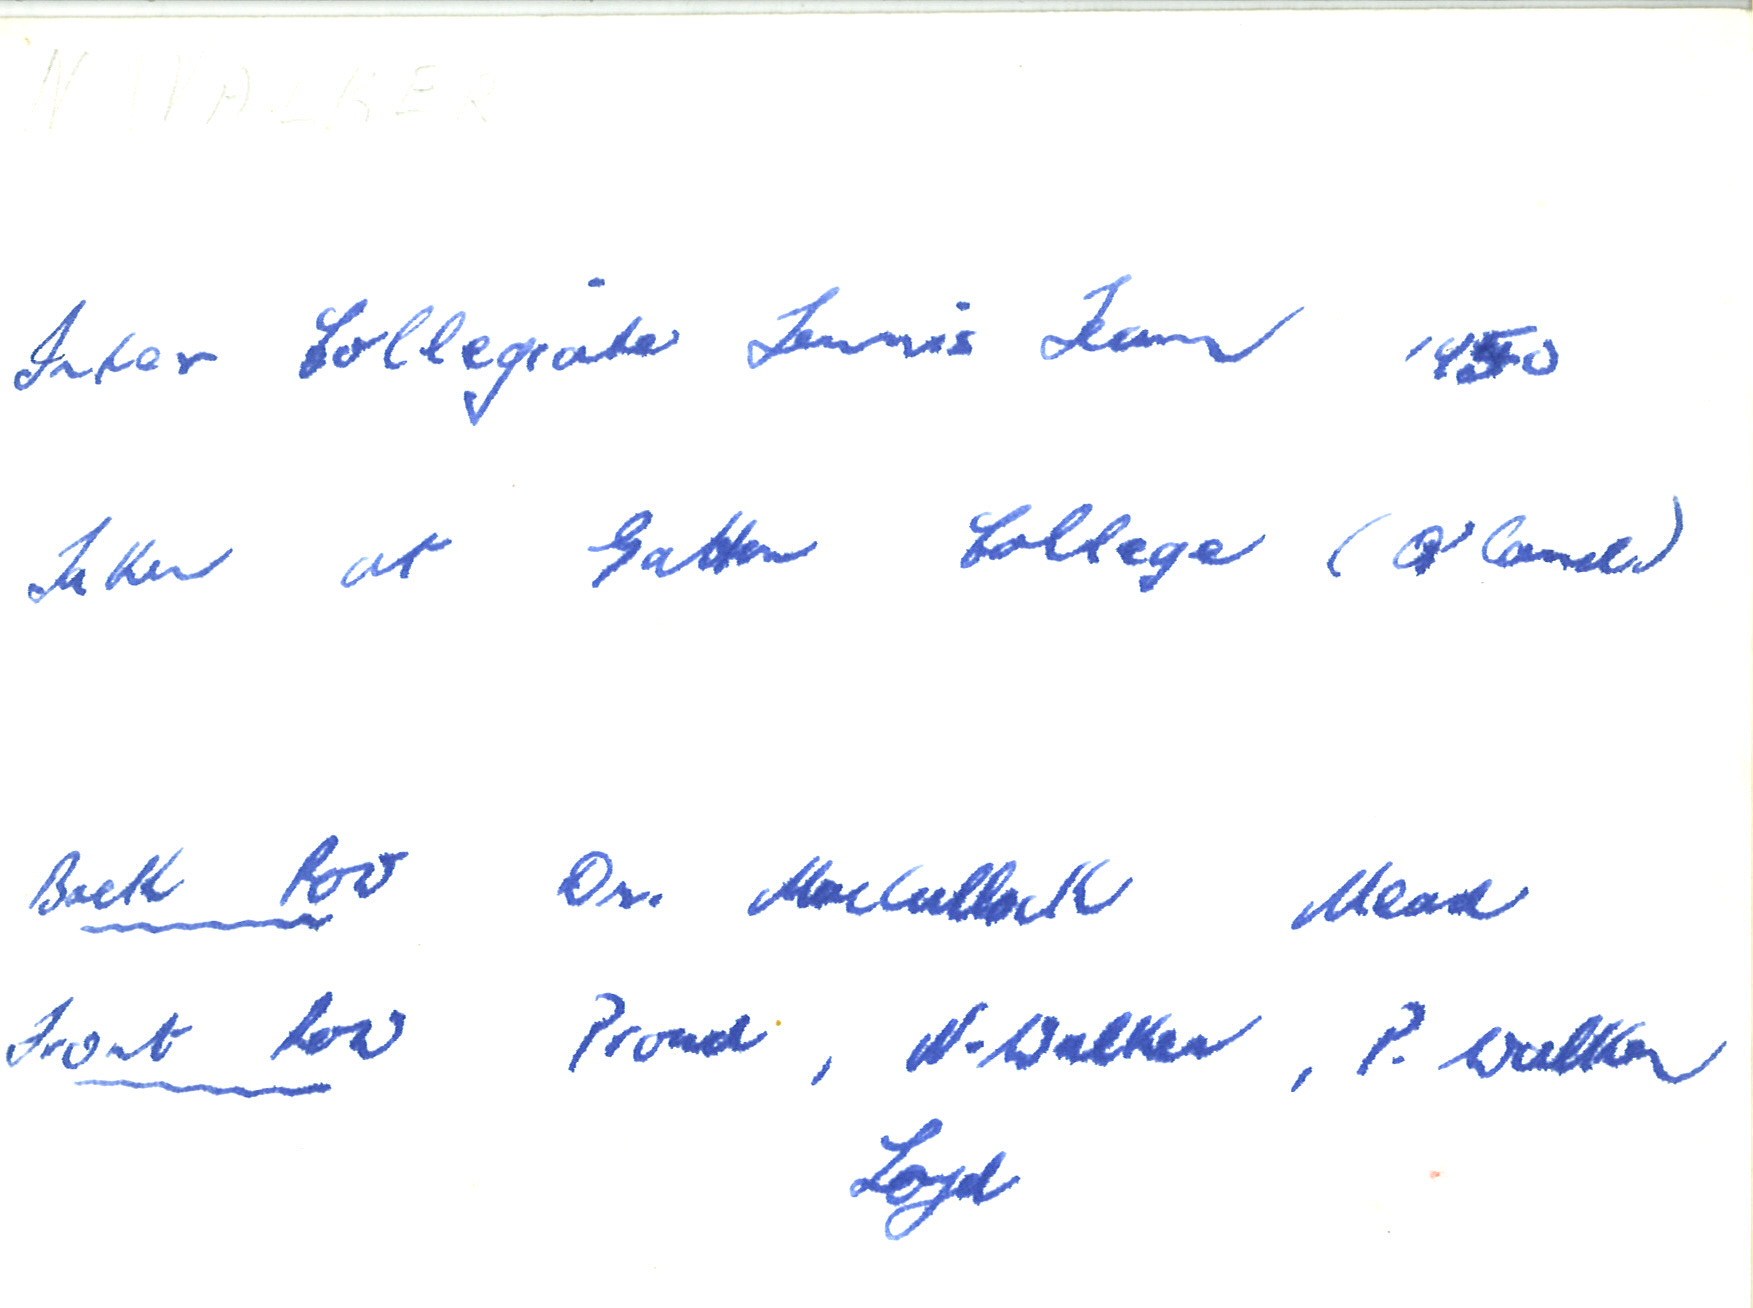 N WALKER
Inter Collegiate Tennis Team 1950
Taken at Gatton College (Q'land)
Back Row Dr. MacCullock Mead
Front Row Proud, N. Walker, P. Walker
Loyd